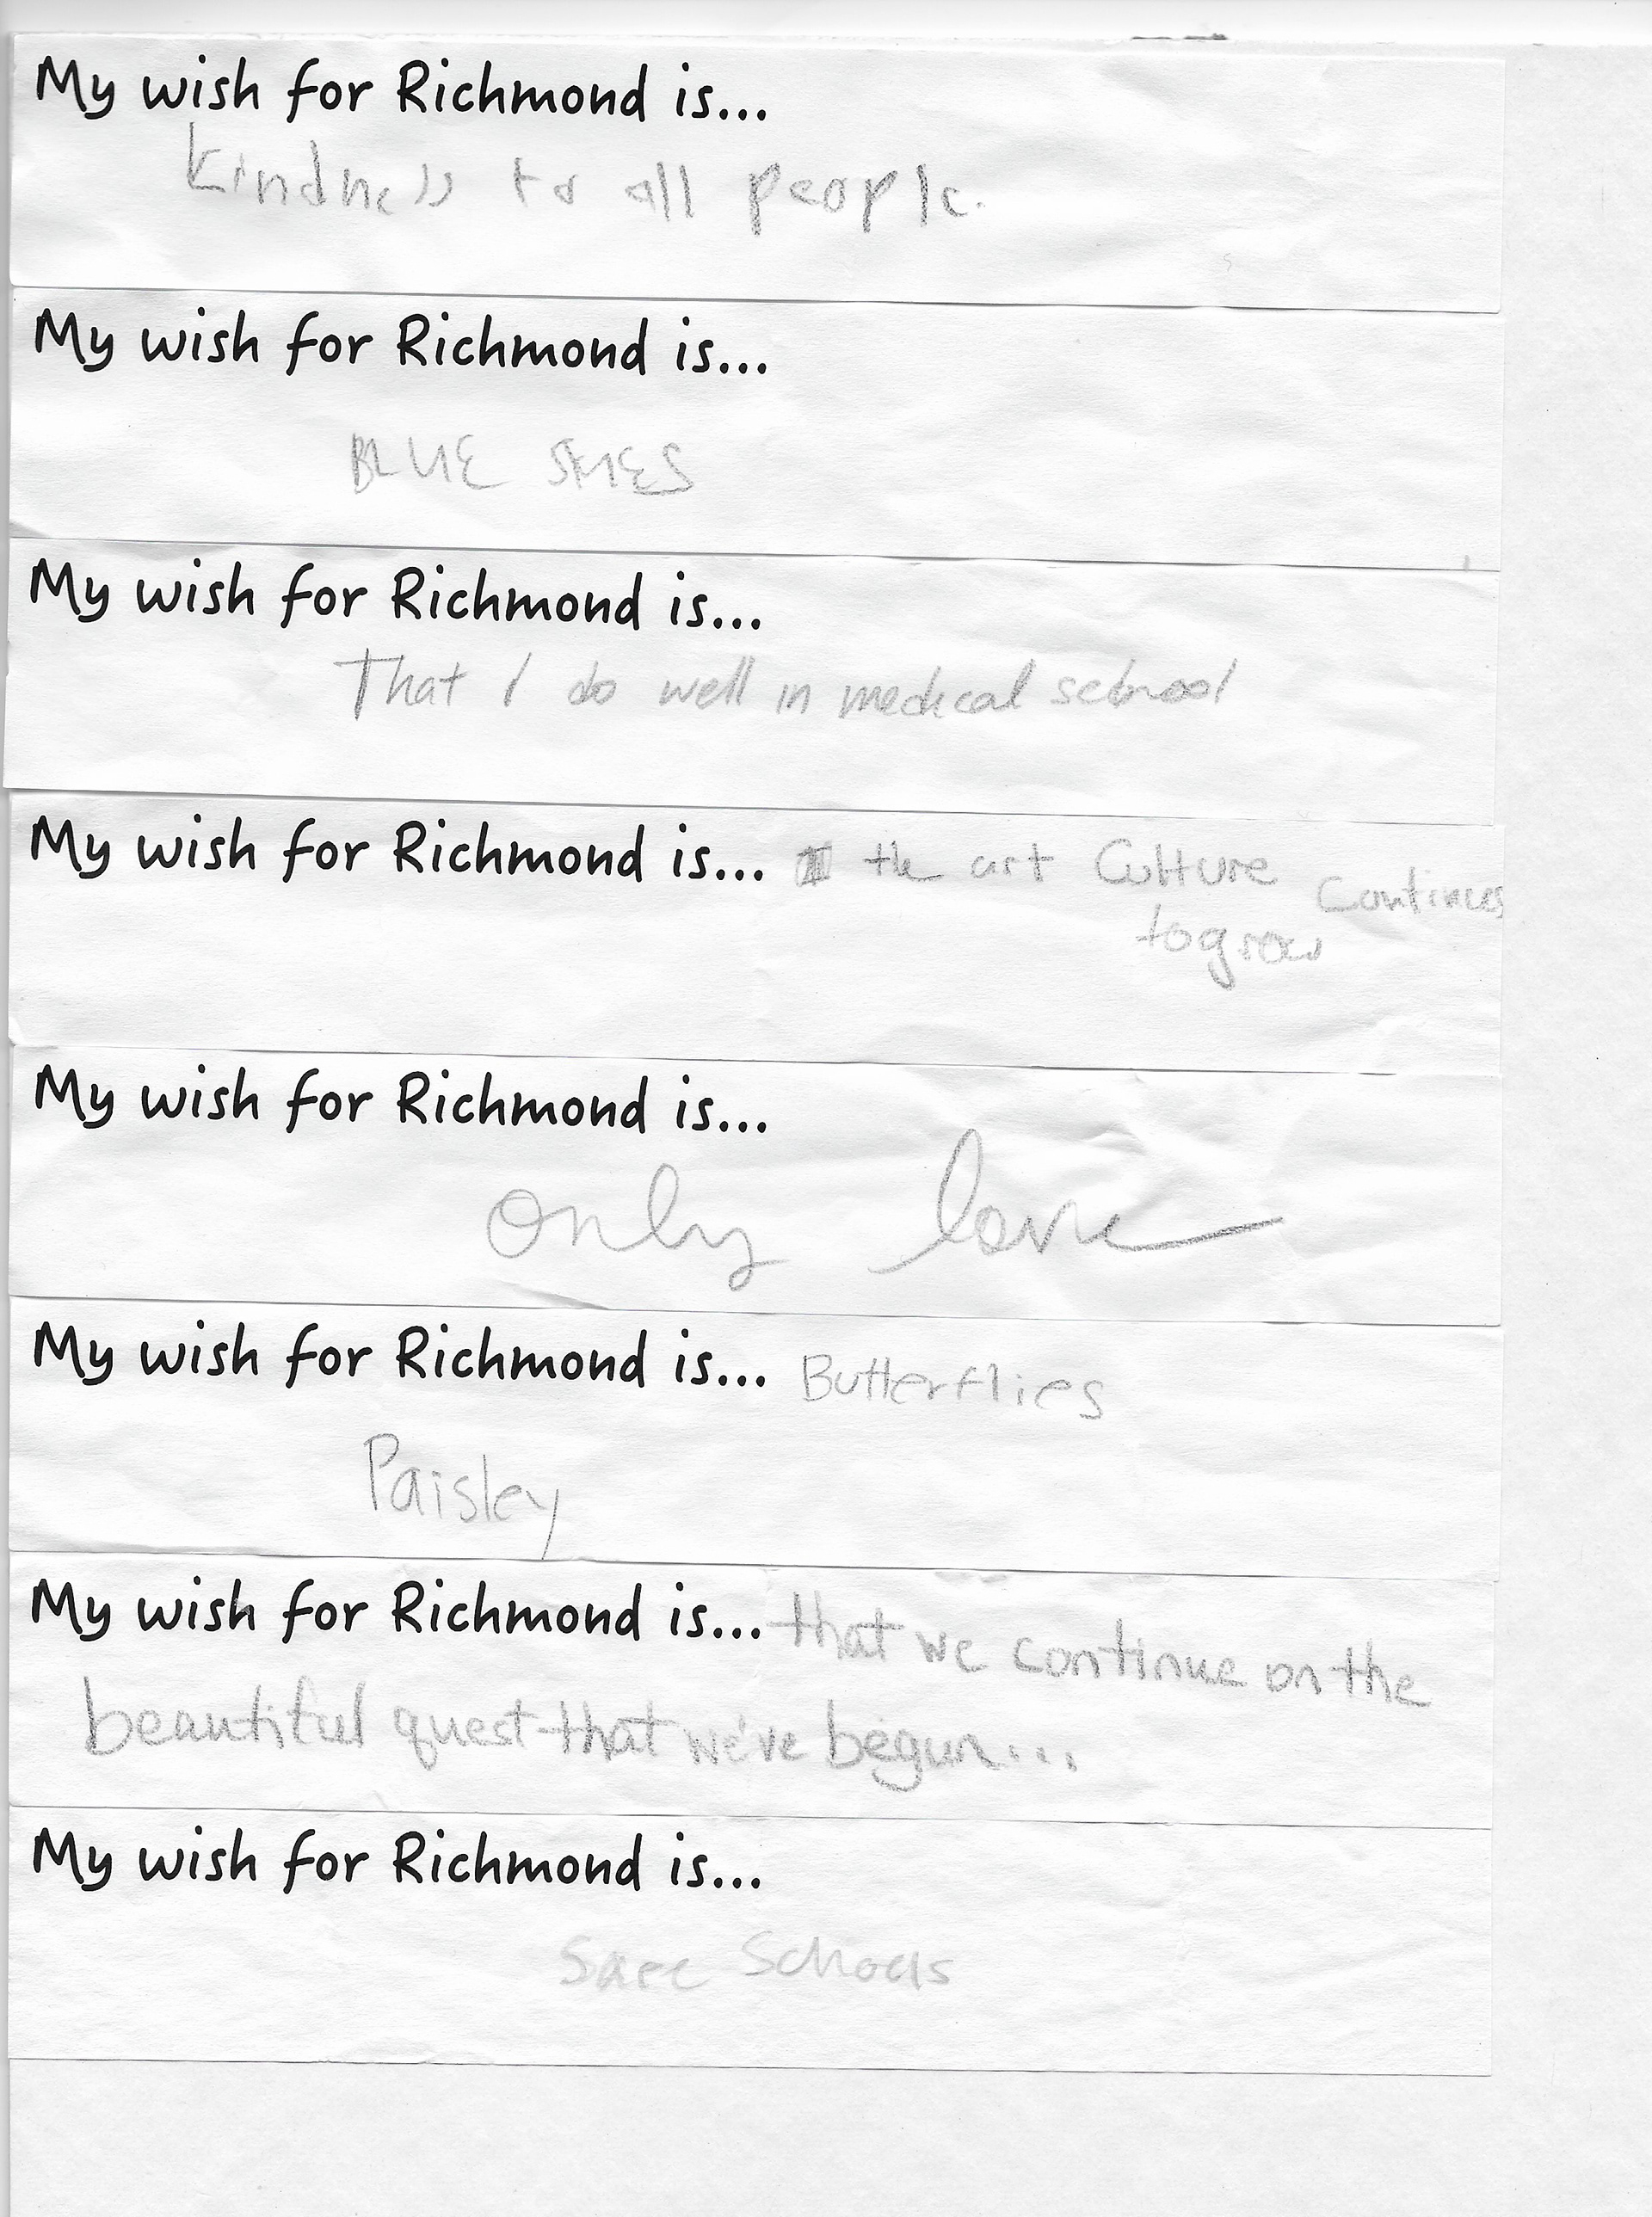 My wish for Richmond is...
Kindness to all people.
My wish for Richmond is...
BLUE SKIES
My wish for Richmond is...
That I do well in medical school
My wish for Richmond is... the art Culture continues
to grow
My wish for Richmond is...
only love
My wish for Richmond is... Butterflies
Paisley
My wish for Richmond is... that we continue on the
beautiful quest that we've begun...
My wish for Richmond is...
Safe Schools